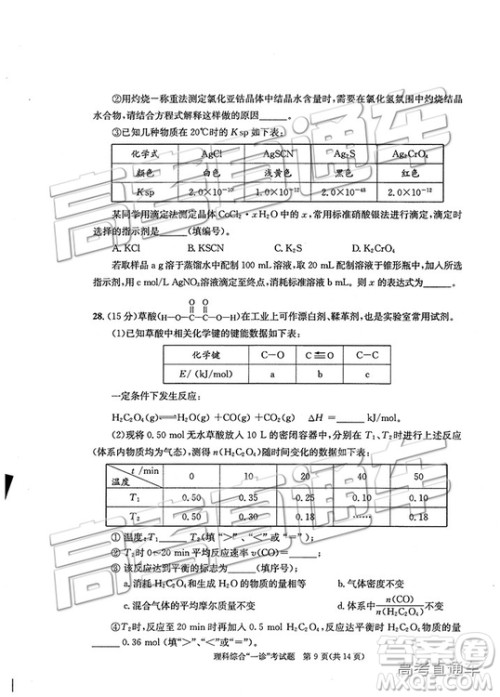 ②用灼烧一称重法测定氯化亚钴晶体中结晶水含量时,需要在氯化氢氛围中灼烧结晶
水合物,请结合方程式解释这样做的原因______。
③已知几种物质在20℃时的Ksp如下表:
化学式 AgCl AgSCN Ag₂S Ag₂CrO₄
颜色 白色 浅黄色 黑色 红色
Ksp 2.0×10 2.0×10⁻¹² 2.0×10⁻⁴⁸ 2.0×10⁻¹²
某同学用滴定法测定晶体CoCl₂·xH₂O中的x,常用标准硝酸银法进行滴定,滴定时
选择的指示剂是______(填编号)。
A. KCl B. KSCN C. K₂S D. K₂CrO₄
若取样品a g溶于蒸馏水中配制100 mL溶液,取20 mL配制溶液于锥形瓶中,加入所选
指示剂,用c mol/L AgNO₃溶液滴定至终点,消耗标准溶液b mL。则x的表达式为______。
28.(15分)草酸(H—O—C—C—O—H)在工业上可作漂白剂、鞣革剂,也是实验室常用试剂。
O O
(1)已知草酸中相关化学键的键能数据如下表:
化学键 C—O C=O C—C
E/(kJ/mol) a b c
一定条件下发生反应:
H₂C₂O₄(g)⇌H₂O(g)+CO₂(g)+CO(g) ΔH=______kJ/mol。
(2)现将0.50 mol无水草酸放入10 L的密闭容器中,分别在T₁、T₂时进行上述反应
(体系内物质均为气态),测得n(H₂C₂O₄)随时间变化的数据如下表:
t/min 温度 0 10 20 40 50
T₁ 0.50 0.35 0.25 0.10 0.10
T₂ 0.50 0.30 0.18 0.18
①温度:T₁____T₂(填“>”、“<”或“=”);
②T₂时0~20 min平均反应速率v(CO)=______;
③该反应达到平衡的标志为______
a.消耗H₂C₂O₄和生成H₂O的物质的量相等 b.气体密度不变
c.混合气体的平均摩尔质量不变 d. n(CO)/n(H₂C₂O₄)不变
④T₂时,若在反应至20 min时再加入0.5 mol H₂C₂O₄,达到平衡后,n(H₂C₂O₄)
____0.36 mol(填“>”、“<”或“=”)。
理科综合“一诊”考试题 第9页(共14页)
高考直通车
高考直通车
高考直通车
高考直通车